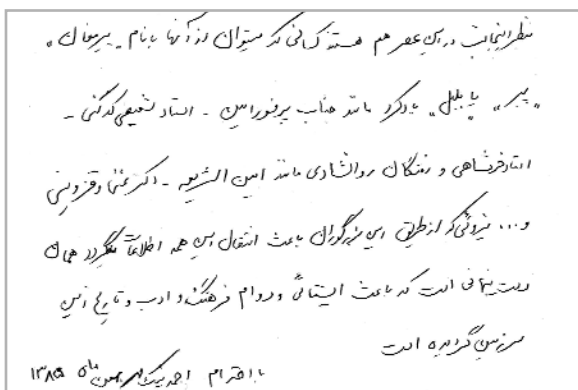 بنظر اینجانب در این عصر هم هستند کسانی که میتوان از آنها بنام "پیرمغان"
"پیر" یا "بلبل" یاد کرد مانند جناب پرفسور امین - استاد شفیعی کدکنی -
استاد فرشاهی و رفتگان روانشادی مانند امین الشریعه - دکتر غنی و قزوینی
و... نیروئی که از طریق این بزرگوران باعث انتقال این همه اطلاعات میگردد همان
دست نهانی است که باعث ایستائی و دوام فرهنگ و ادب و تاریخ این
سرزمین گردیده است
با احترام احمد نیک بهمن ماه ۱۳۸۵